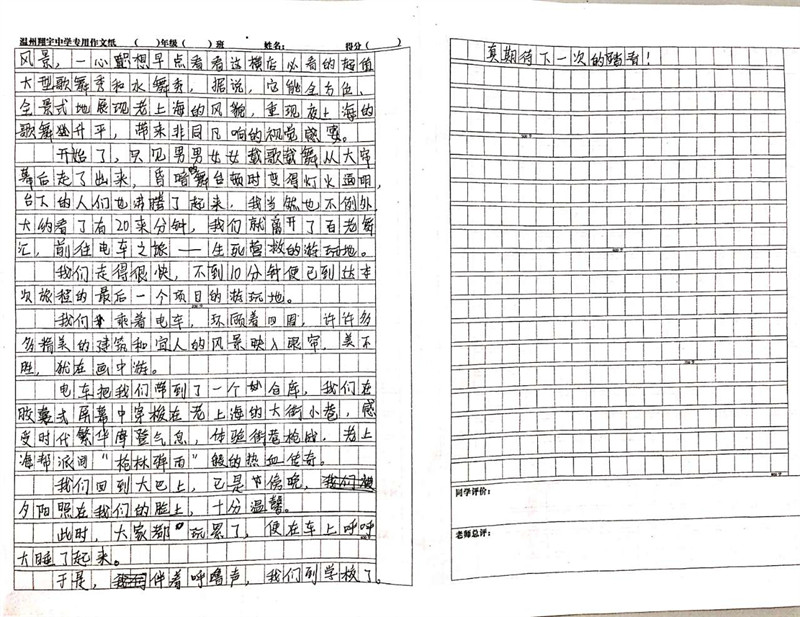 温州翔宇中学专用作文纸 ( )年级( )班 姓名: 得分( )
风景，一心想早点看看这横店必看的超值
大型歌舞秀和水舞秀，据说，它能全方位、
全景式地展现老上海的风貌，重现夜上海的
歌舞升平，带来非同凡响的视觉感受。
开始了，只见男男女女载歌载舞从大帘
幕后走了出来，昏暗的舞台顿时变得灯火通明，
台下的人们也沸腾了起来，我当然也不例外，
大约看了有20来分钟，我们就离开了百老舞
汇，前往电车之旅——生死营救的游玩地。
我们走得很快，不到10分钟便已到达本
次旅程的最后一个项目的游玩地。
我们乘着电车，环顾着四周，许许多
多精美的建筑和宜人的风景映入眼帘，美不
胜，犹在画中游。
电车把我们带到了一个仓库，我们在
胶囊式屏幕中穿梭在老上海的大街小巷，感
受时代繁华摩登气息，体验街巷枪战，老上
海帮派间“枪林弹雨”般的热血传奇。
我们回到大巴上，已是傍晚，
夕阳照在我们的脸上，十分温馨。
此时，大家都玩累了，便在车上呼呼
大睡了起来。
于是，伴着呼噜声，我们到学校了。
真期待下一次的踏青！
同学评价：
老师总评：